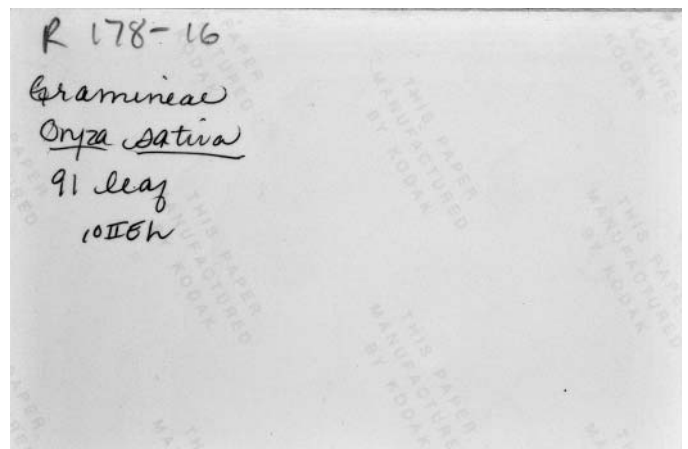 R 178-16
Gramineae
Oryza sativa
91 leaf
THIS PAPER
MANUFACTURED
BY KODAK